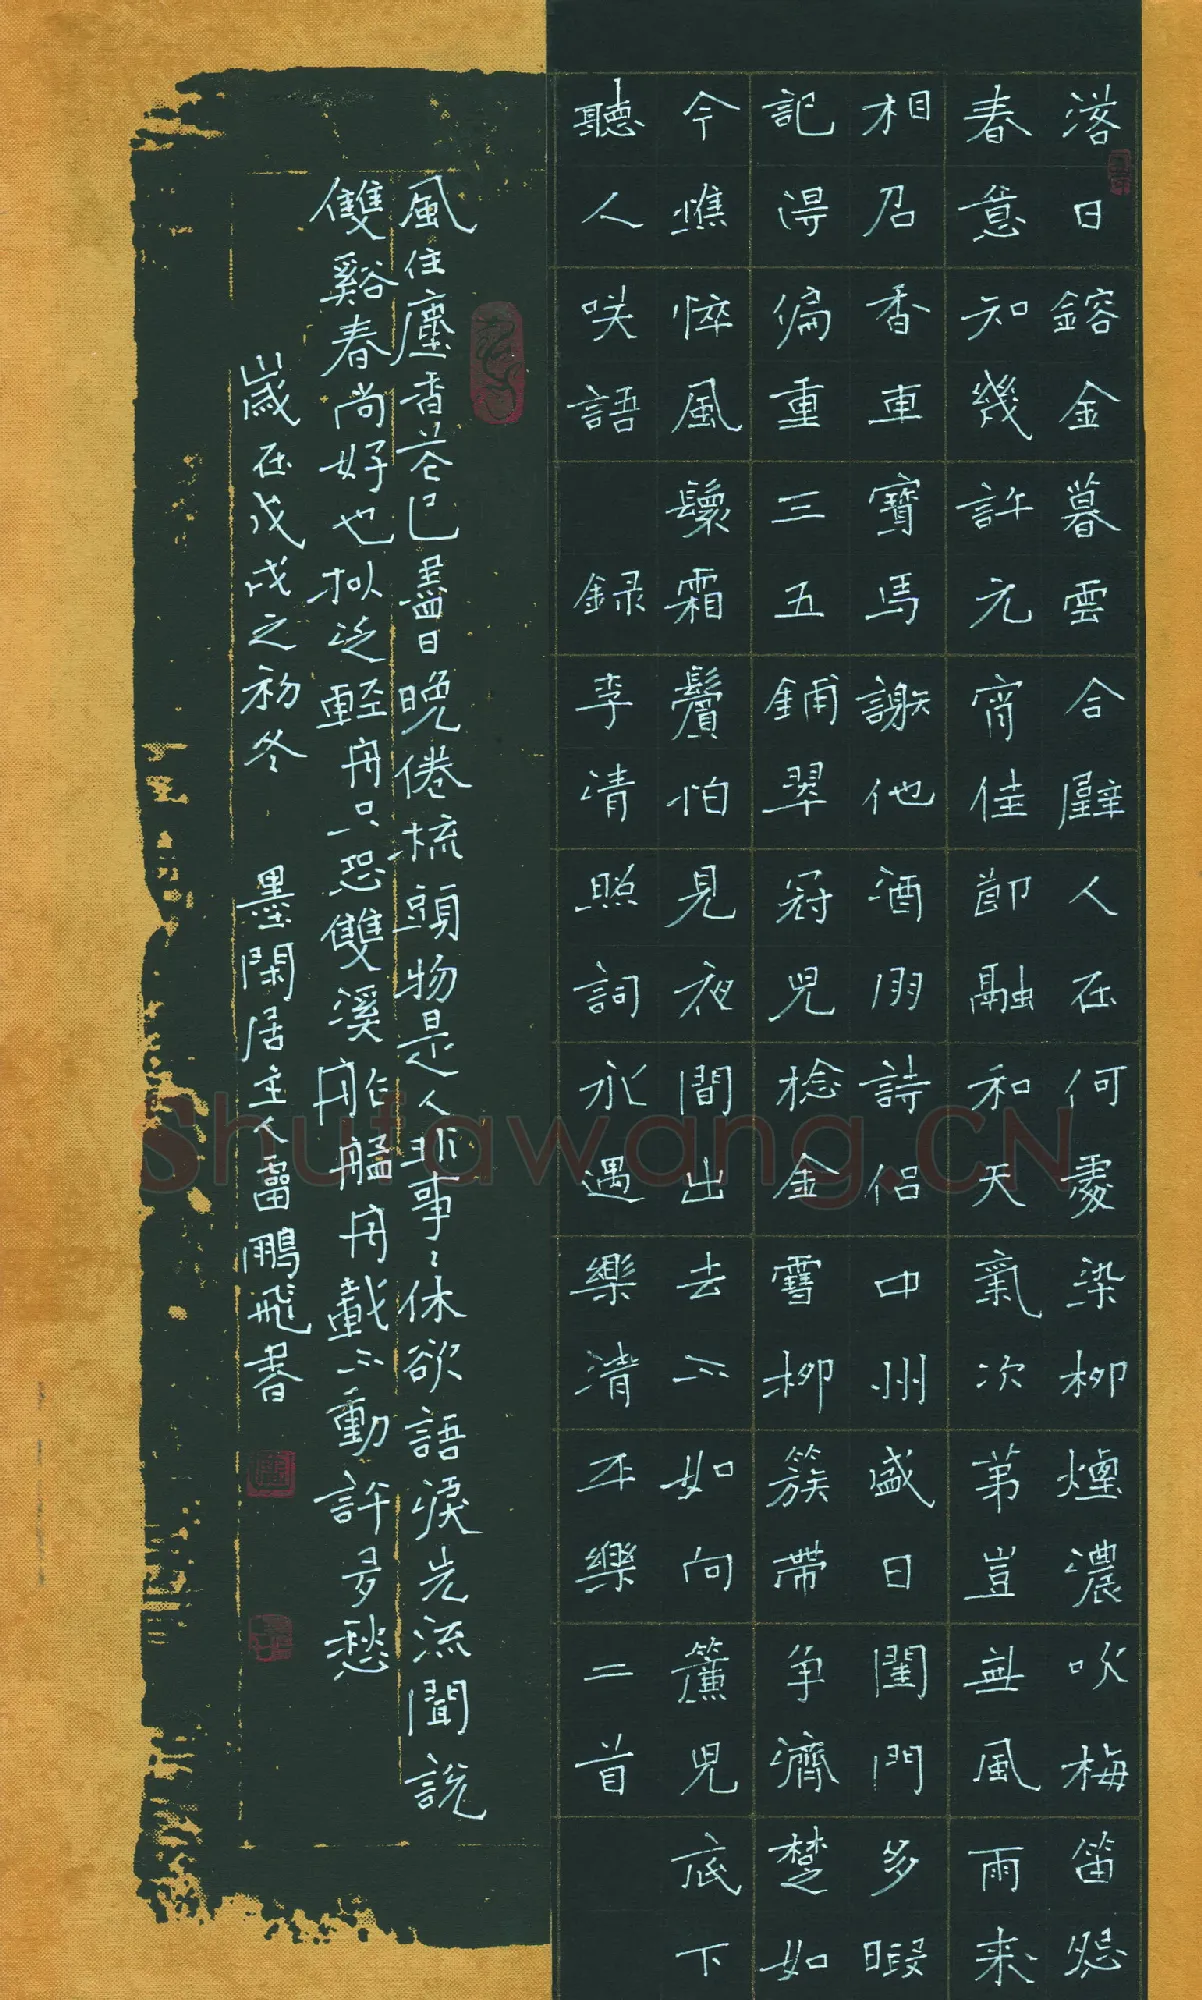 落日鎔金暮雲合璧人在何處染柳煙濃吹梅笛怨
春意知幾許元宵佳節融和天氣次第豈無風雨来
相召香車寶馬謝他酒朋詩侶中州盛日閨門多暇
記得偏重三五鋪翠冠兒捻金雪柳簇帶争濟楚如
今憔悴風鬟霜鬢怕見夜間出去不如向簾兒底下
聽人咲語 録李清照詞永遇樂清平樂二首
風住塵香花已盡日晚倦梳頭物是人非事〻休欲語淚先流聞說
雙谿春尚好也拟泛輕舟只恐雙溪舴艋舟載不動許多愁
歲在戊戌之初冬 墨閑居主人雷鵬飛書
Shufawang.CN